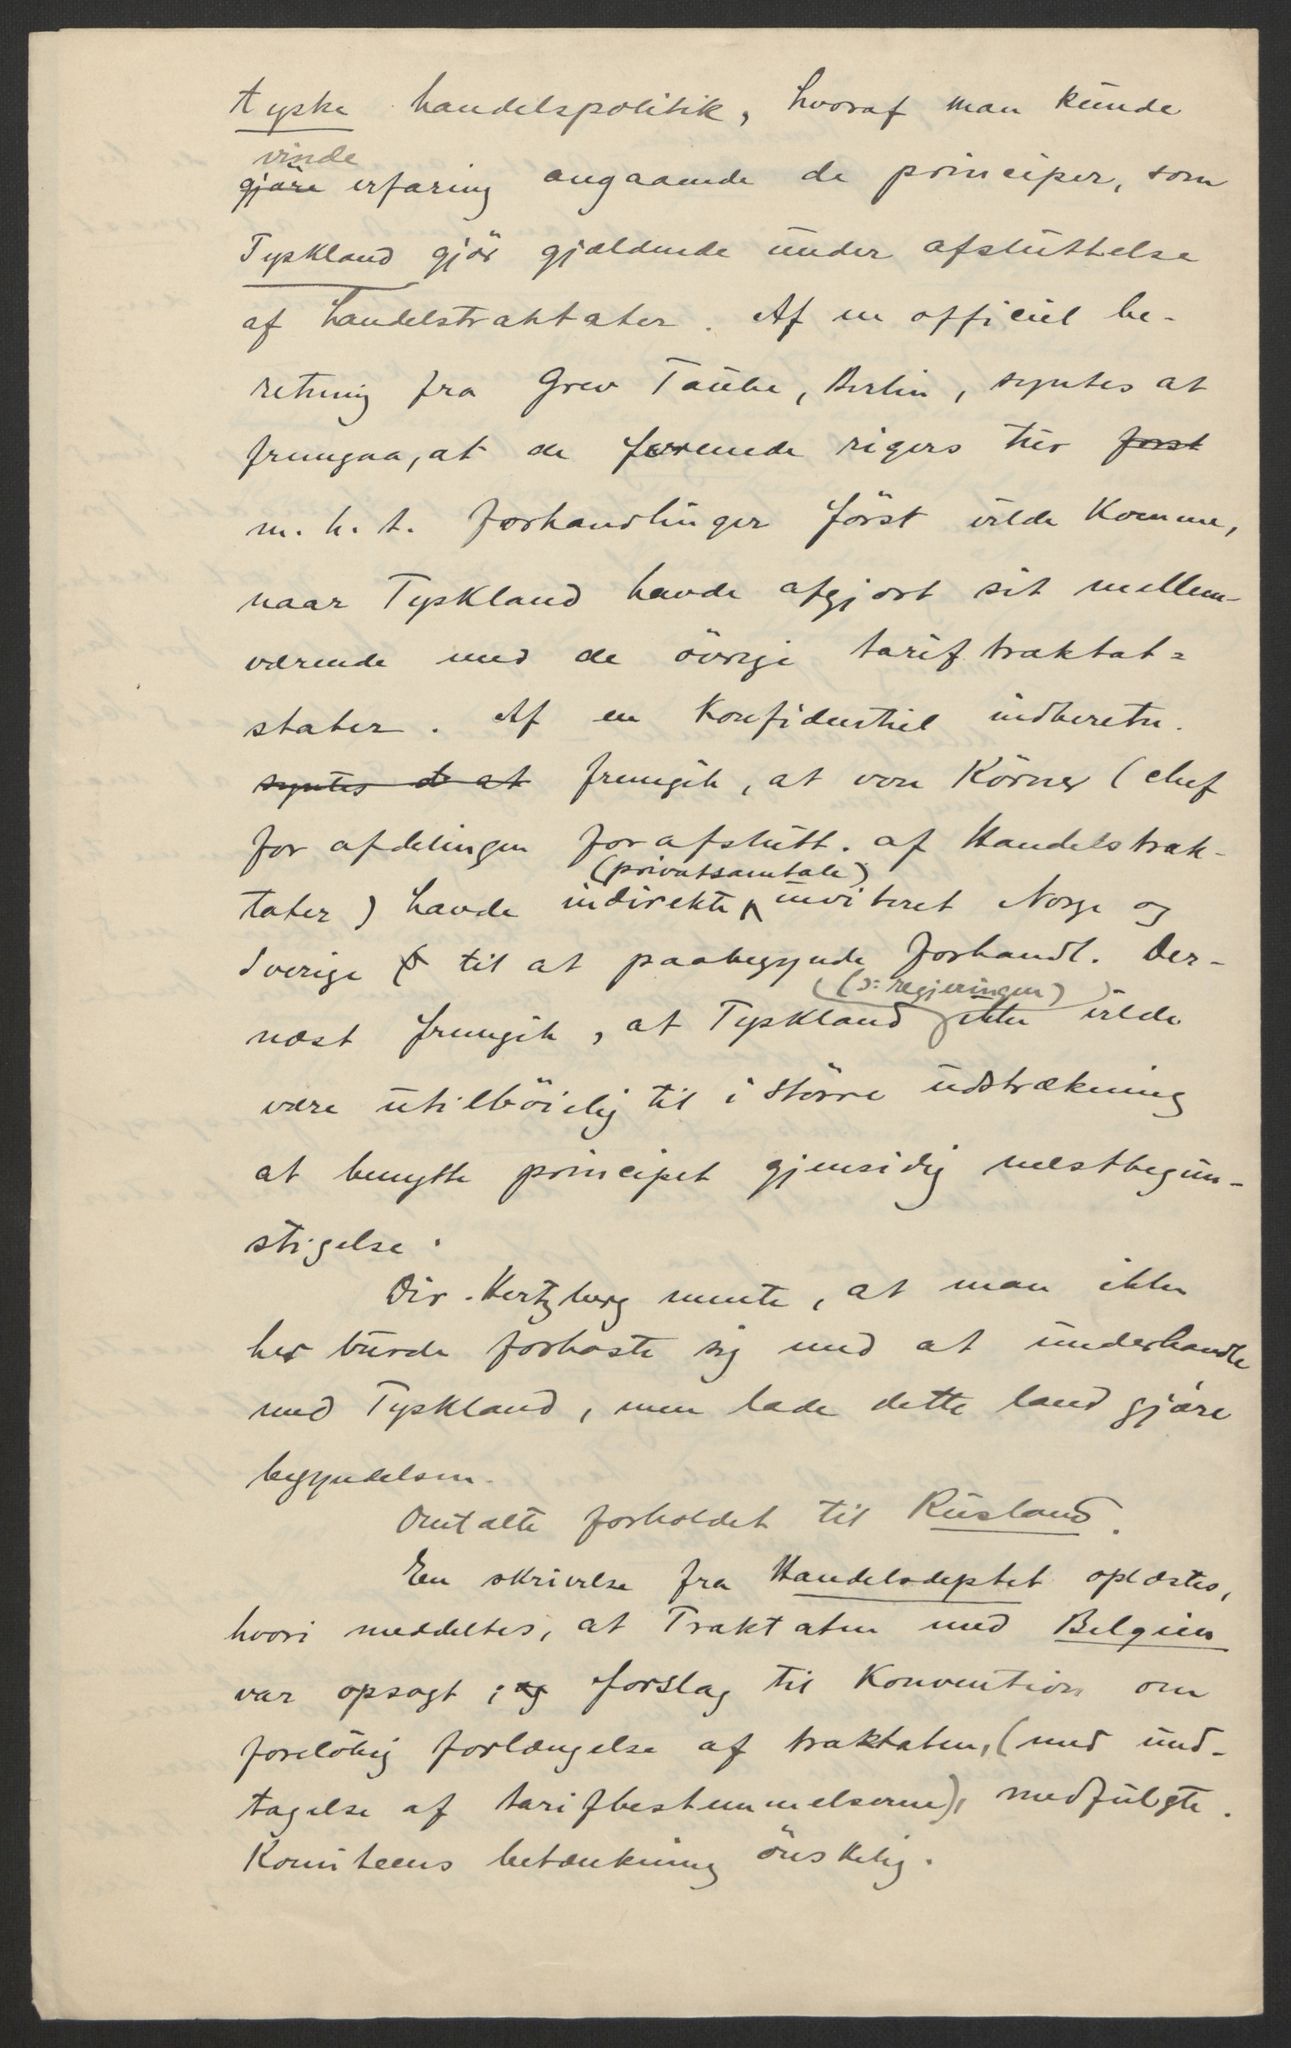 tyske handelspolitik, hvoraf man kunde
vinde
gjöre erfaring angaaende de principer, som
Tyskland gjör gjældende under afsluttelse
af handelstraktater. Af en officiel be-
retning fra Grev Taube, Berlin, syntes at
fremgaa, at de forenede rigers tur först
m. h. t. forhandlinger först vilde komme,
naar Tyskland havde afgjort sit mellem-
værende med de övrige tariftraktat=
stater. Af en konfidentiel indberetn.
syntes at fremgik, at von Körner (chef
for afdelingen for afslutt. af Handelstrak-
(privatsamtale)
tater) havde indirekte inviteret Norge og
Sverige til at paabegynde forhandl. Der-
(ɔ: regjeringen)
næst fremgik, at Tyskland ikke vilde
være utilböielig til i större udstrækning
at benytte principet gjensidig mestbegun-
stigelse.
Dir. Hertzberg mente, at man ikke
her burde forhaste sig med at underhandle
med Tyskland, men lade dette land gjöre
begyndelsen.
Omtalte forholdet til Rusland.
En skrivelse fra Handelsdeptet oplæstes,
hvori meddeltes, at Traktaten med Belgien
var opsagt; og forslag til Konvention om
forelöbig forlængelse af traktaten, (med und-
tagelse af tarifbestemmelserne), medfulgte.
Komiteens betænkning önskelig.